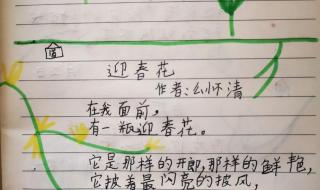 迎春花
作者:么怀清
在我面前,
有一瓶迎春花。
它是那样的开朗,那样的鲜艳,
它披着最闪亮的披风,